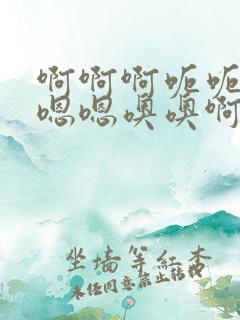 啊啊啊呃呃
嗯嗯噢噢啊
坐墙等红杏
未经同意禁止转载